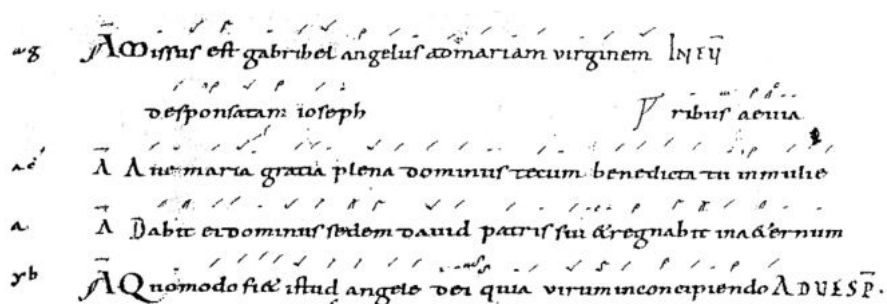 ag Ā Missus est gabrihel angelus ad mariam virginem IN EV̄
desponsatam ioseph ribus aeuia
Ā Aue maria gratia plena dominus tecum benedicta tu in mulie
a Ā Dabit ei dominus sedem dauid patris sui & regnabit in a&ernum
yb Ā Quomodo fi& istud angele dei quia virum in concipiendo AD UESP̄.